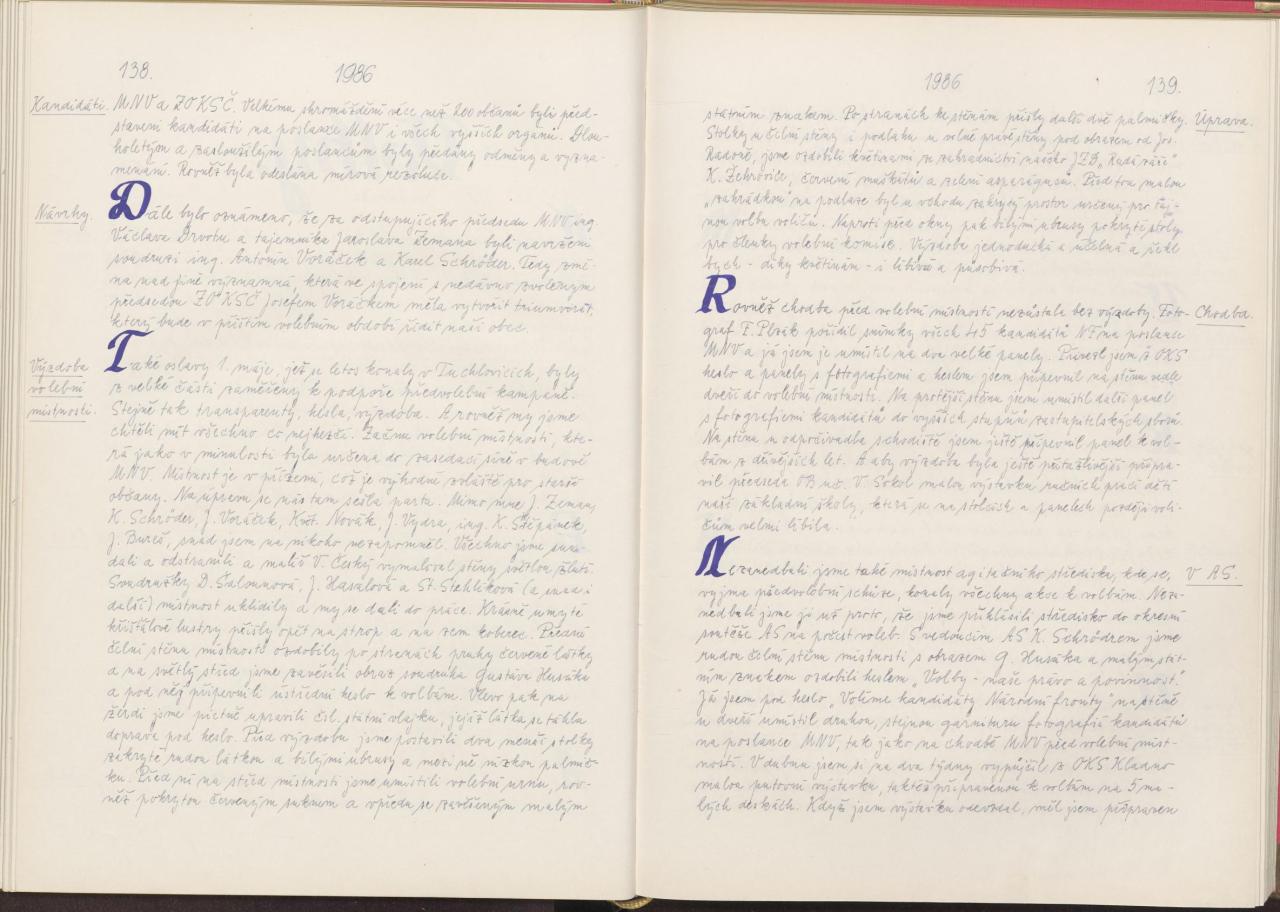 138.
1986
Kandidáti.
MNV a ZO KSČ. Velkému shromáždění více než 200 občanů byli před-
staveni kandidáti na poslance MNV i všech vyšších orgánů. Dlou-
holetým a zasloužilým poslancům byly předány odměny a vyzna-
menání. Rovněž byla odeslána mírová rezoluce.
Návrhy.
Dále bylo oznámeno, že za odstupujícího předsedu MNV ing.
Václava Drvotu a tajemníka Jaroslava Zemana byli navrženi
soudruzi ing. Antonín Voráček a Karel Schröder. Tedy změ-
na nad jiné významná, která ve spojení s nedávno zvoleným
předsedou ZO KSČ Josefem Voráčkem měla vytvořit triumvirát,
který bude v příštím volebním období řídit naší obec.
Výzdoba
volební
místnosti.
Také oslavy 1. máje, jež se letos konaly v Tuchlovicích, byly
z velké části zaměřeny k podpoře předvolební kampaně.
Stejně tak transparenty, hesla, výzdoba. A rovněž my jsme
chtěli mít všechno co nejhezčí. Začnu volební místností, kte-
rá jako v minulosti byla určena do zasedací síně v budově
MNV. Místnost je v přízemí, což je výhodné zvláště pro starší
občany. Na úpravu se nás tam sešla parta. Mimo mne J. Zeman,
K. Schröder, J. Voráček, Květ. Novák, J. Vydra, ing. K. Štěpánek,
J. Bureš, snad jsem na nikoho nezapomněl. Všechno jsme sun-
dali a odstranili a malíř V. Český vymaloval stěny světlou žlutí.
Soudružky D. Šalounová, J. Hasalová a St. Stehlíková (a snad i
další) místnost uklidily a my se dali do práce. Krásně umyté
křišťálové lustry přišly opět na strop a na zem koberec. Přední
čelní stěnu místnosti ozdobily po stranách pruhy červené látky
a na světlý střed jsme zavěsili obraz soudruha Gustáva Husáka
a pod něj připevnili ústřední heslo k volbám. Vlevo pak na
žerdi jsme pietně upravili čsl. státní vlajku, jejíž látka se táhla
doprava pod heslo. Před výzdobu jsme postavili dva menší stolky
zakryté rudou látkou a bílými ubrusy a mezi ně nízkou palmič-
ku. Před ní na střed místnosti jsme umístili volební urnu, rov-
něž pokrytou červeným suknem a vpředu se zavěšeným malým
1986
139.
státním znakem. Po stranách ke stěnám přišly další dvě palmičky.
Úprava.
Stolky u čelní stěny i podlahu u volné pravé stěny pod obrazem od Jos.
Radoně, jsme ozdobili květinami ze zahradnictví našeho JZD „Rudá záře"
K. Žehrovice, červení muškátů a zelení asparágusů. Před tou malou
„zahrádkou" na podlaze byl u vchodu zakrytý prostor určený pro taj-
nou volbu voličů. Naproti před okny pak bílými ubrusy pokryté stoly
pro členky volební komise. Výzdoba jednoduchá a účelná a řekl
bych - díky květinám - i líbivá a působivá.
Rovněž chodba před volební místností nezůstala bez výzdoby. Foto-
Chodba.
graf F. Plzák pořídil snímky všech 45 kandidátů NF na poslance
MNV a já jsem je umístil na dva velké panely. Přivezl jsem z OKS
heslo a panely s fotografiemi a heslem jsem připevnil na stěnu vedle
dveří do volební místnosti. Na protější stěnu jsem umístil další panel
s fotografiemi kandidátů do vyšších stupňů zastupitelských sborů.
Na stěnu u odpočívadla schodiště jsem ještě připevnil panel k vol-
bám z dřívějších let. A aby výzdoba byla ještě přitažlivější připra-
vil předseda OB uč. V. Sokol malou výstavku ručních prací dětí
naší základní školy, která se na stolcích a panelech později voli-
čům velmi líbila.
Nezanedbali jsme také místnost agitačního střediska, kde se,
V AS.
vyjma předvolební schůze, konaly všechny akce k volbám. Neza-
nedbali jsme ji už proto, že jsme přihlásili středisko do okresní
soutěže AS na počest voleb. S vedoucím AS K. Schrödrem jsme
rudou čelní stěnu místnosti s obrazem G. Husáka a malým stát-
ním znakem ozdobili heslem „Volby - naše právo a povinnost."
Já jsem pod heslo „Volíme kandidáty Národní fronty" na stěně
u dveří umístil druhou, stejnou garnituru fotografií kandidátů
na poslance MNV, tak jako na chodbě MNV před volební míst-
ností. V dubnu jsem si na dva týdny vypůjčil z OKS Kladno
malou putovní výstavku, taktéž připravenou k volbám na 5 ma-
lých deskách. Když jsem výstavku odevzdal, měl jsem připraven